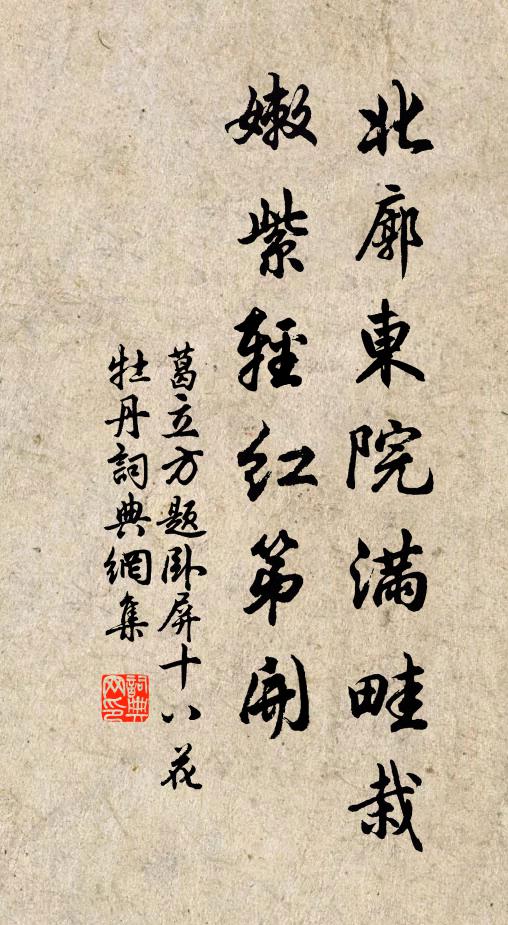 北廓東院滿畦栽
嫩紫輕紅第開
葛立方題卧屏十八花
牡丹詞典網集
詞典
网印